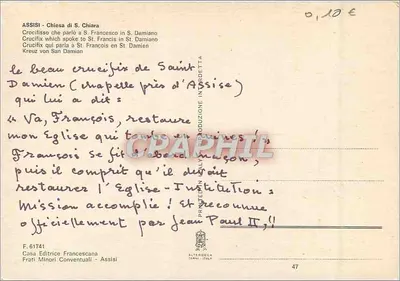 ASSISI - Chiesa di S. Chiara
Crocifisso che parlò a S. Francesco in S. Damiano
Crucifix which spoke to St. Francis in St. Damiano
Crucifix qui parla a St. François en St. Damien
Kreuz von San Damian
0,10 €
le beau crucifix de Saint
Damien (chapelle près d'Assise)
qui lui a dit =
« Va, François, restaure
mon Eglise qui tombe en ruines !,,
François se fit d'abord maçon,
puis il comprit qu'il devait
restaurer l'Eglise - Institution =
Mission accomplie ! Et reconnue
officiellement par Jean Paul II,!!
CPARPHIL
PRINTED IN ITALY RIPRODUZIONE INTERDETTA
F. 61741
Casa Editrice Francescana
Frati Minori Conventuali - Assisi
47